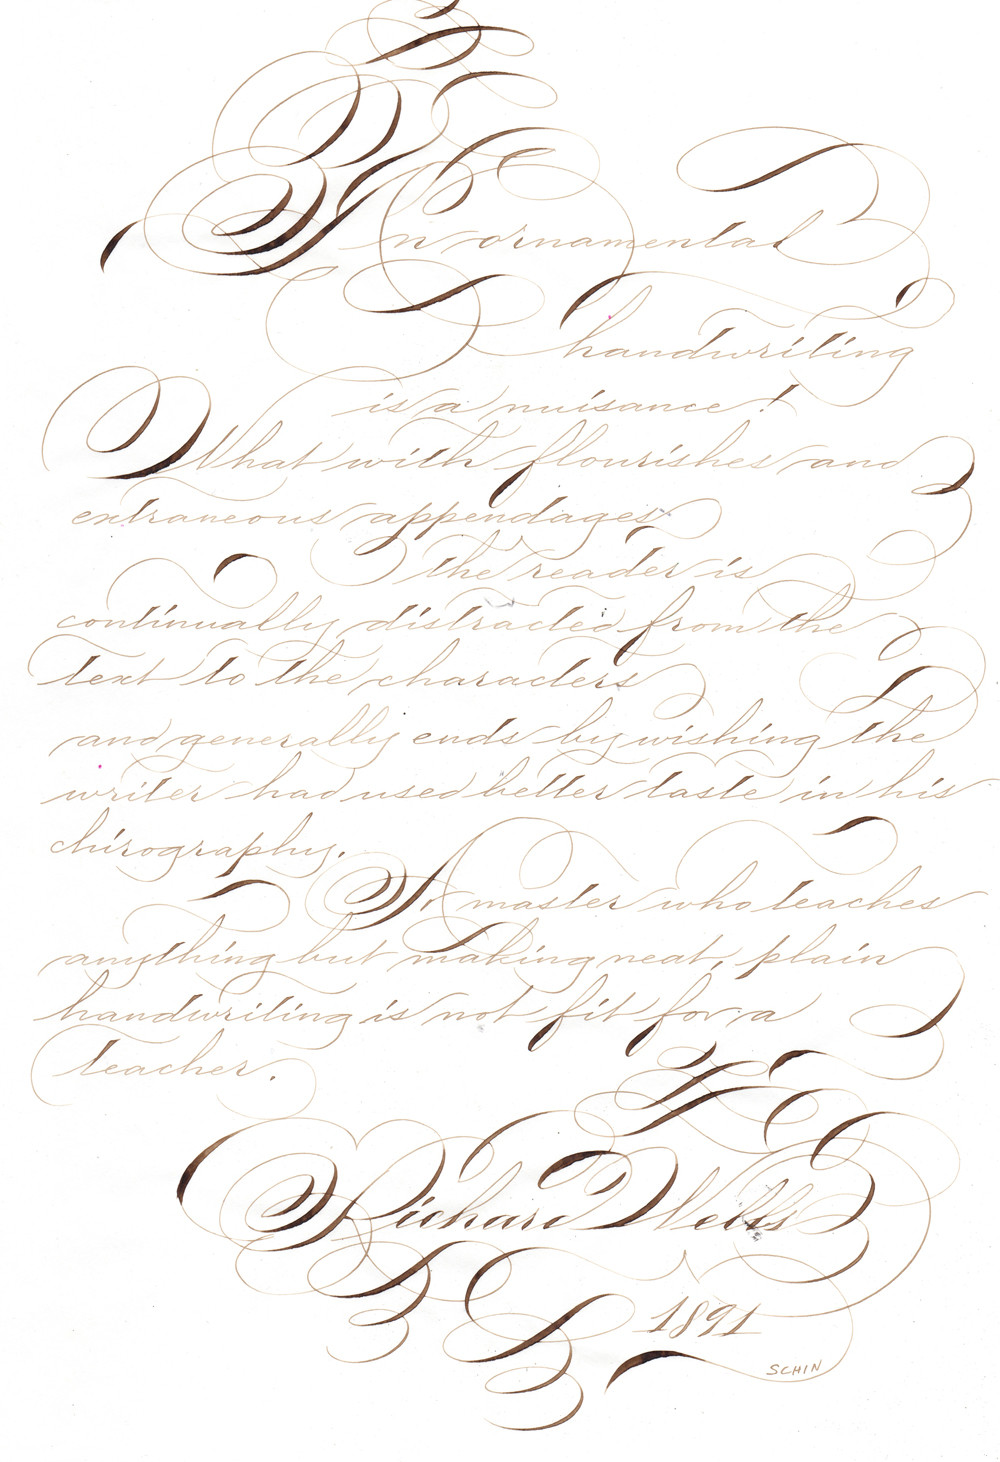 An ornamental
handwriting
is a nuisance!
What with flourishes and
extraneous appendages
the reader is
continually distracted from the
text to the characters
and generally ends by wishing the
writer had used better taste in his
chirography.
A master who teaches
anything but making neat, plain
handwriting is not fit for a
teacher.
Richard Wells
1891
SCHIN